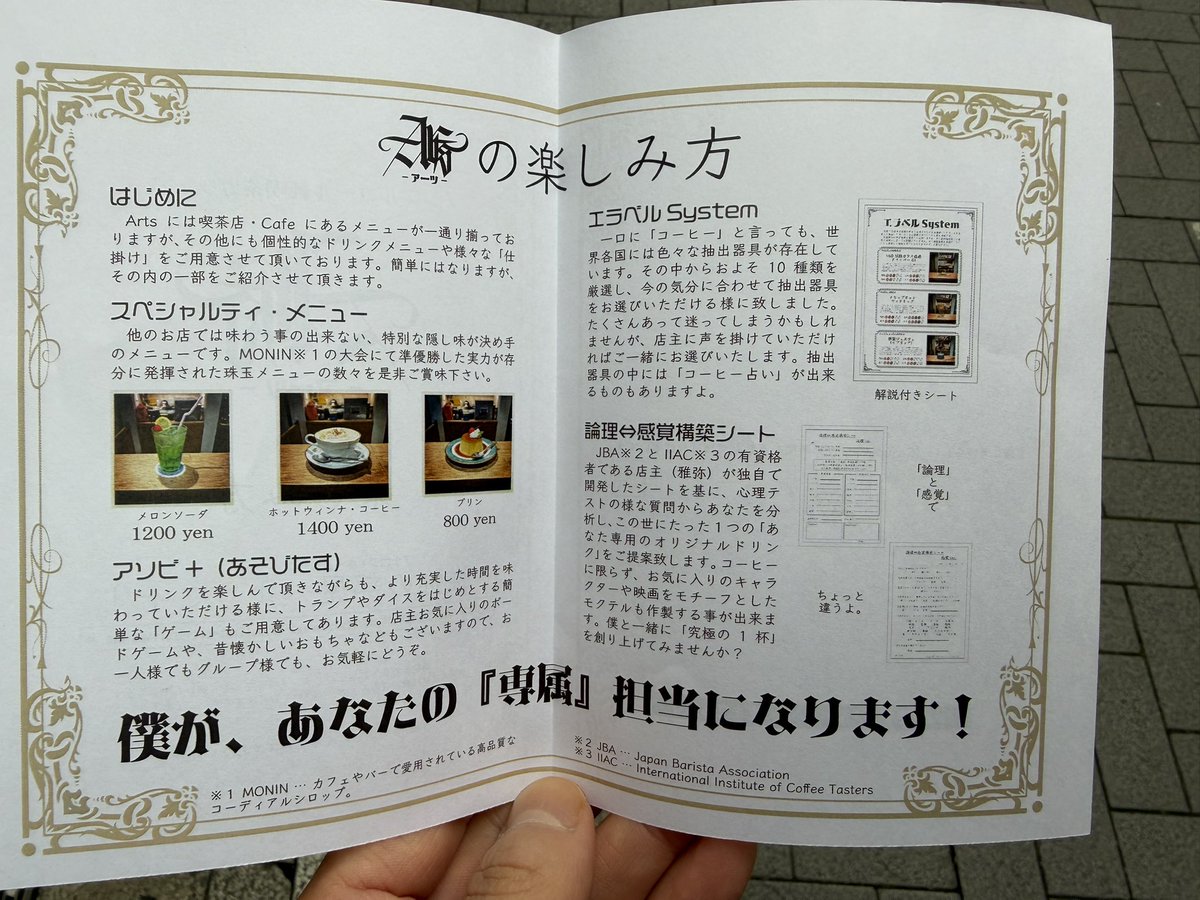 Arts
-アーツ-
の楽しみ方
はじめに
Arts には喫茶店・Cafe にあるメニューが一通り揃ってお
りますが、その他にも個性的なドリンクメニューや様々な「仕
掛け」をご用意させて頂いております。簡単にはなりますが、
その内の一部をご紹介させて頂きます。
スペシャルティ・メニュー
他のお店では味わう事の出来ない、特別な隠し味が決め手
のメニューです。MONIN※1の大会にて準優勝した実力が存
分に発揮された珠玉メニューの数々を是非ご賞味下さい。
メロンソーダ
1200 yen
ホットウィンナ・コーヒー
1400 yen
プリン
800 yen
アソビ＋（あそびたす）
ドリンクを楽しんで頂きながらも、より充実した時間を味
わっていただける様に、トランプやダイスをはじめとする簡
単な「ゲーム」もご用意してあります。店主お気に入りのボー
ドゲームや、昔懐かしいおもちゃなどもございますので、お
一人様でもグループ様でも、お気軽にどうぞ。
エラベル System
一口に「コーヒー」と言っても、世
界各国には色々な抽出器具が存在して
います。その中からおよそ 10 種類を
厳選し、今の気分に合わせて抽出器具
をお選びいただける様に致しました。
たくさんあって迷ってしまうかもしれ
ませんが、店主に声を掛けていただけ
ればご一緒にお選びいたします。抽出
器具の中には「コーヒー占い」が出来
るものもありますよ。
エラベル System
解説付きシート
論理⇔感覚構築シート
JBA※2とIIAC※3の有資格
者である店主（雅弥）が独自で
開発したシートを基に、心理テ
ストの様な質問からあなたを分
析し、この世にたった1つの「あ
なた専用のオリジナルドリン
ク」をご提案致します。コーヒー
に限らず、お気に入りのキャラ
クターや映画をモチーフとした
モクテルも作製する事が出来ま
す。僕と一緒に「究極の 1 杯」
を創り上げてみませんか？
「論理」
と
「感覚」
で
ちょっと
違うよ。
僕が、あなたの『専属』担当になります！
※1 MONIN … カフェやバーで愛用されている高品質な
コーディアルシロップ。
※2 JBA … Japan Barista Association
※3 IIAC … International Institute of Coffee Tasters